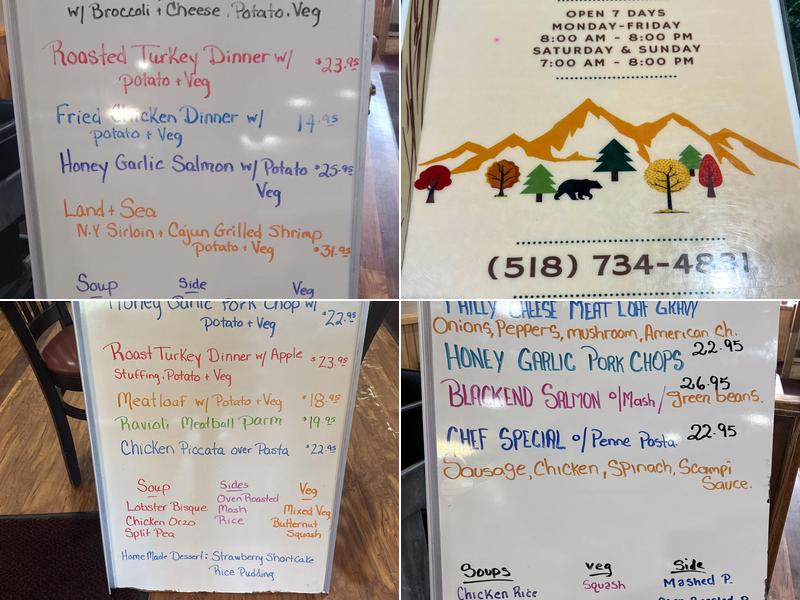 w/ Broccoli + Cheese, Potato, Veg
Roasted Turkey Dinner w/ $23.95
potato + Veg
Fried Chicken Dinner w/ 14.95
potato + Veg
Honey Garlic Salmon w/ Potato $25.95
Veg
Land + Sea
N.Y Sirloin + Cajun Grilled Shrimp
potato + Veg $31.95
Soup Side Veg
OPEN 7 DAYS
MONDAY-FRIDAY
8:00 AM - 8:00 PM
SATURDAY & SUNDAY
7:00 AM - 8:00 PM
(518) 734-4831
Honey Garlic Pork Chop w/
Potato + Veg $22.95
Roast Turkey Dinner w/ Apple $23.95
Stuffing, Potato + Veg
Meatloaf w/ Potato + Veg $18.95
Ravioli Meatball Parm $19.95
Chicken Piccata over Pasta $22.95
Soup Sides Veg
Lobster Bisque Oven Roasted Mixed Veg
Chicken Orzo Mash Butternut
Split Pea Rice Squash
Home Made Dessert: Strawberry Shortcake
Rice Pudding
PHILLY CHEESE MEAT LOAF GRAVY
Onions, Peppers, mushroom, American Ch.
HONEY GARLIC PORK CHOPS 22.95
26.95
BLACKEND SALMON o/Mash/green beans.
CHEF SPECIAL o/Penne Pasta. 22.95
Sausage, Chicken, Spinach, Scampi
Sauce.
Soups Veg Side
Chicken Rice Squash Mashed P.